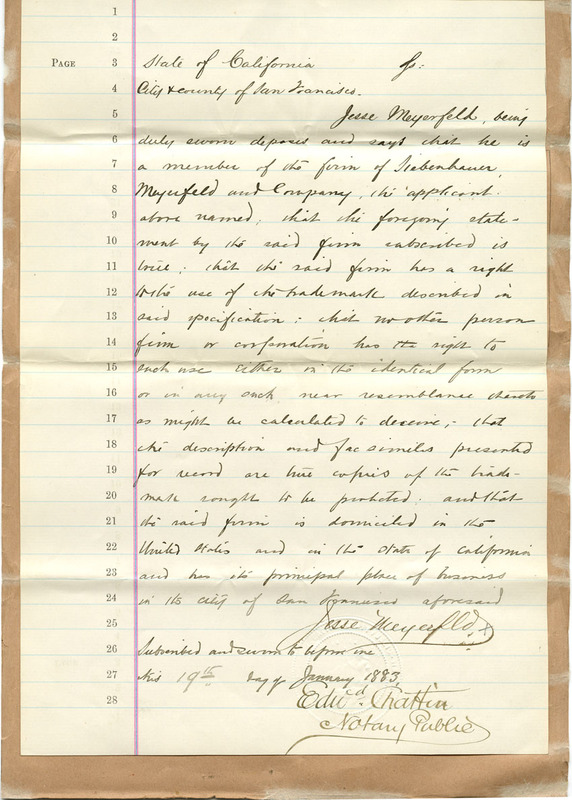 1
2
PAGE 3 State of California ss:
4 City & county of San Francisco.
5 Jesse Meyerfeld, being
6 duly sworn deposes and says that he is
7 a member of the firm of Siebenhauer,
8 Meyerfeld and Company, the applicant
9 above named; that the foregoing state-
10 ment by the said firm subscribed is
11 true; that the said firm has a right
12 to the use of the trademark described in
13 said specification; that no other person
14 firm or corporation has the right to
15 such use either in the identical form
16 or in any such near resemblance thereto
17 as might be calculated to deceive;- that
18 the description and fac similes presented
19 for record are true copies of the trade-
20 mark sought to be protected; and that
21 the said firm is domiciled in the
22 United States and in the State of California
23 and has its principal place of business
24 in the city of San Francisco aforesaid
25 Jesse Meyerfeld
26 Subscribed and sworn to before me
27 this 19th day of January 1883,
28 Edwd. Chattin
Notary Public